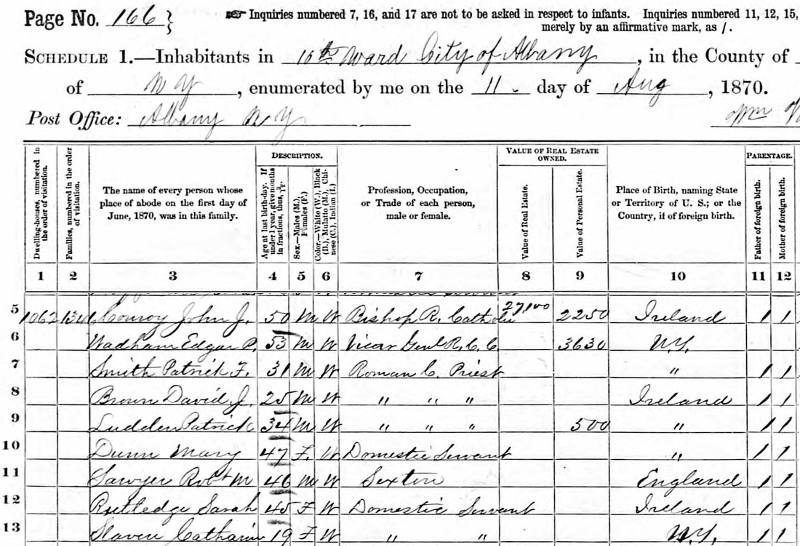 Page No. 166} ☞ Inquiries numbered 7, 16, and 17 are not to be asked in respect to infants. Inquiries numbered 11, 12, 15,
merely by an affirmative mark, as /.
SCHEDULE 1.—Inhabitants in 10th Ward City of Albany, in the County of
of N Y, enumerated by me on the 11. day of Aug, 1870.
Post Office: Albany N Y Wm
DESCRIPTION. VALUE OF REAL ESTATE OWNED. PARENTAGE.
Dwelling-houses, numbered in the order of visitation.
Families, numbered in the order of visitation.
The name of every person whose place of abode on the first day of June, 1870, was in this family.
Age at last birth-day. If under 1 year, give months in fractions, thus, 3/12.
Sex.—Males (M.), Females (F.)
Color.—White (W.), Black (B.), Mulatto (M.), Chinese (C.), Indian (I.)
Profession, Occupation, or Trade of each person, male or female.
Value of Real Estate.
Value of Personal Estate.
Place of Birth, naming State or Territory of U. S.; or the Country, if of foreign birth.
Father of foreign birth.
Mother of foreign birth.
1 2 3 4 5 6 7 8 9 10 11 12
5 1062 Conroy John J. 50 M W Bishop R. Catholic 27100 2250 Ireland / /
6 Wadhams Edgar P. 53 M W Vicar Genl R. C. C. 3630 N.Y.
7 Smith Patrick F. 31 M W Roman C. Priest " / /
8 Brown David J. 25 M W " " " Ireland / /
9 Ludden Patrick 34 M W " " " 500 " / /
10 Dunn Mary 47 F. W Domestic Servant " / /
11 Sawyer Robt M 46 M W Sexton England / /
12 Rutledge Sarah 45 F W Domestic Servant Ireland / /
13 Slaven Catharin 19 F W " " N.Y. / /